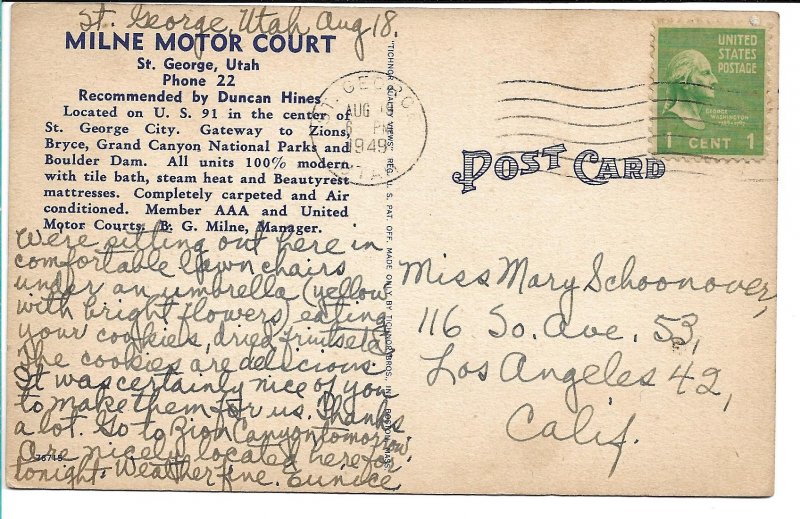 St. George, Utah, Aug 18.
MILNE MOTOR COURT
St. George, Utah
Phone 22
Recommended by Duncan Hines
Located on U. S. 91 in the center of
St. George City. Gateway to Zions,
Bryce, Grand Canyon National Parks and
Boulder Dam. All units 100% modern
with tile bath, steam heat and Beautyrest
mattresses. Completely carpeted and Air
conditioned. Member AAA and United
Motor Courts. B. G. Milne, Manager.
We're sitting out here in
comfortable lawn chairs
under an umbrella (yellow
with bright flowers) eating
your cookies, dried fruits etc.
The cookies are delicious
It was certainly nice of you
to make them for us. Thanks
a lot. Go to Zion Canyon tomorrow
Are nicely located here for
tonight. Weather fine. Eunice
75715
"TICHNOR QUALITY VIEWS" REG. U. S. PAT. OFF. MADE ONLY BY TICHNOR BROS. INC. BOSTON, MASS.
ST. GEORGE
AUG
PM
1949
UTAH
UNITED
STATES
POSTAGE
GEORGE
WASHINGTON
1 CENT 1
POST CARD
Miss Mary Schoonover,
116 So. Ave. 53,
Los Angeles 42,
Calif.